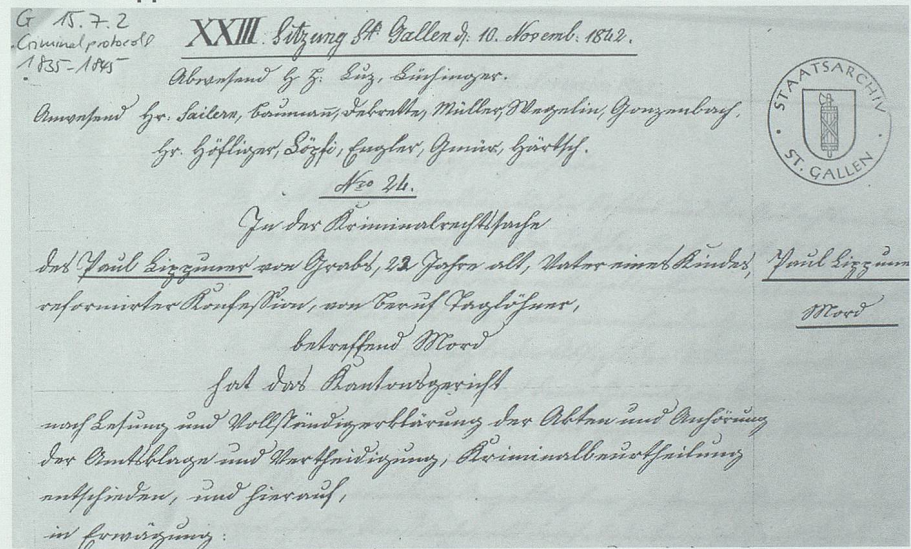 G 15.7.2
Criminalprotocoll
1835-1845
XXIII. Sitzung St. Gallen d. 10. Novemb: 1842.
Abwesend H H: Luz, Büchinger.
Anwesend Hr. Sailern, Baumañ, Müller, Wegelin, Gonzenbach,
Hr. Höfliger, Göpfi, Engler, Gmür, Härtsch.
Nro 24.
In der Kriminalrechtssache
des Paul Lippuner von Grabs, 23 Jahre alt, Vater eines Kindes,
reformirter Konfession, von Beruf Taglöhner,
betreffend Mord
hat das Kantonsgericht
nach Lesung und Vollständigerklärung der Akten und Anhörung
der Amtsklage und Vertheidigung, Kriminalbeurtheilung
entschieden, und hierauf,
in Erwägung:
Paul Lippune
Mord
STAATSARCHIV
ST. GALLEN